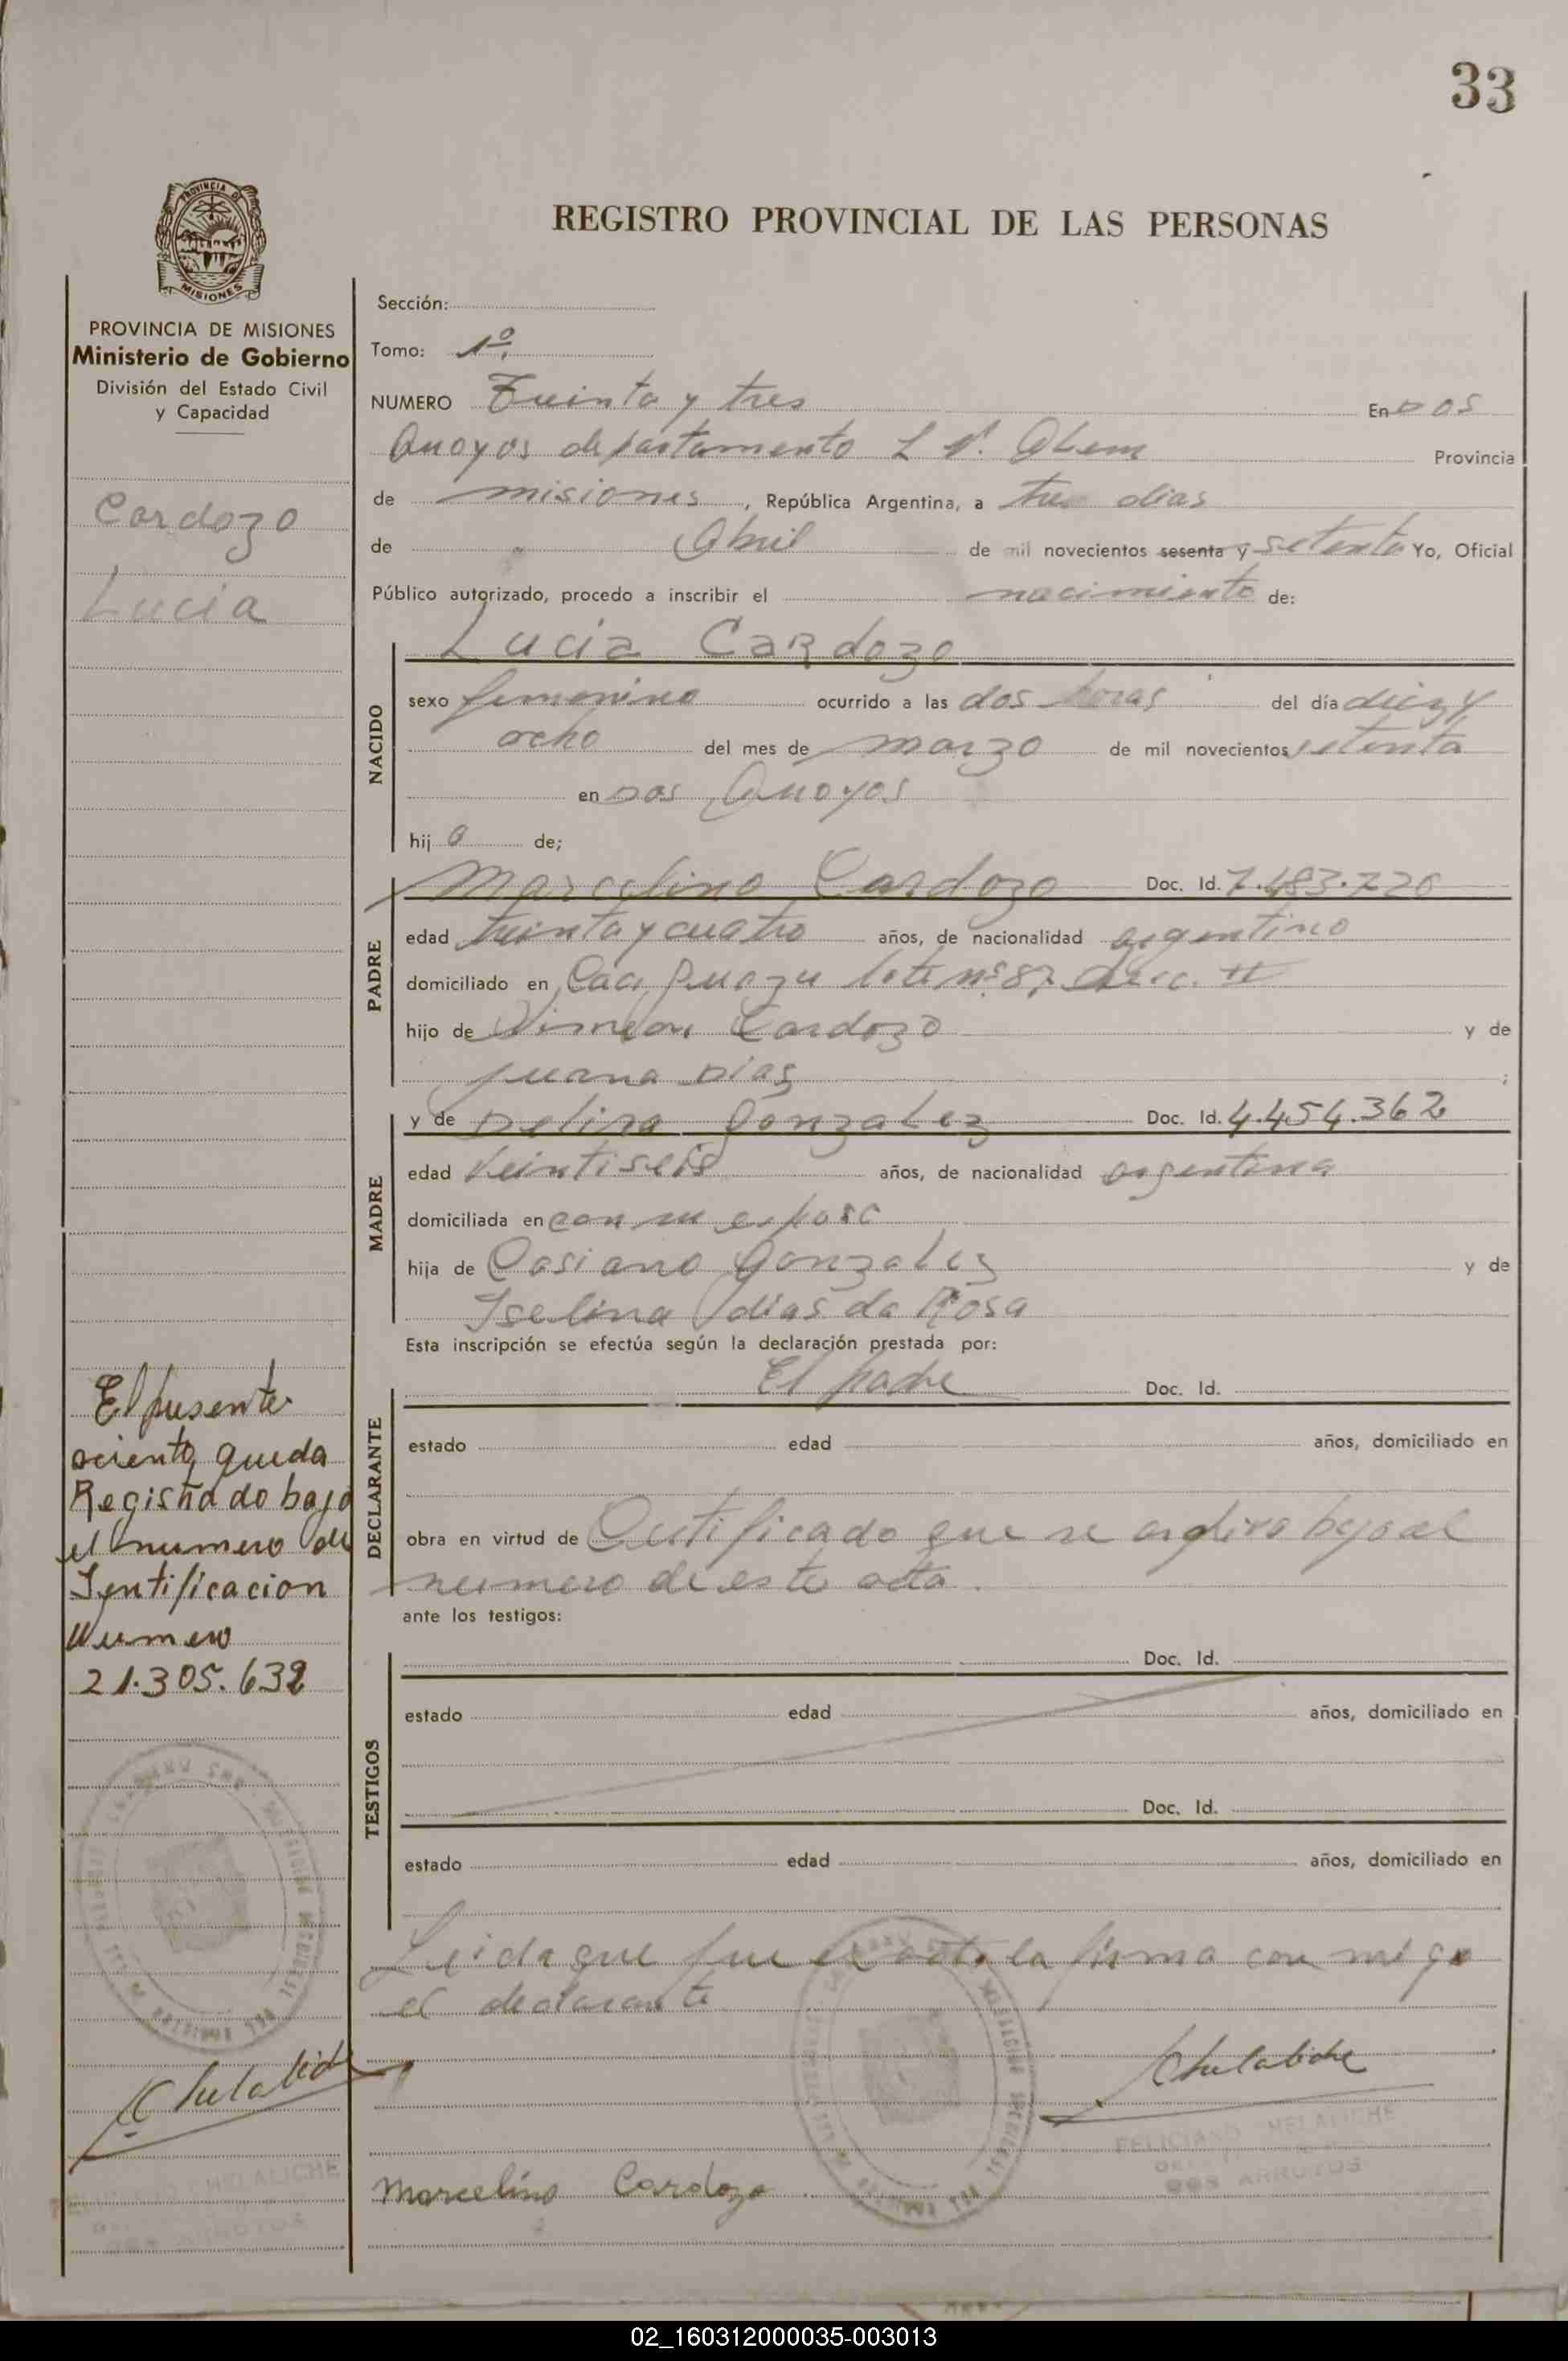 33
PROVINCIA DE
MISIONES
REGISTRO PROVINCIAL DE LAS PERSONAS
PROVINCIA DE MISIONES
Ministerio de Gobierno
División del Estado Civil
y Capacidad
Cardozo
Lucia
El presente
aciento queda
Registrado bajo
el numero de
Ientificacion
Numero
21.305.632
Sección:
Tomo: 1º
NUMERO Treinta y tres En Dos
Arroyos departamento L N. Alem Provincia
de misiones, República Argentina, a tres dias
de Abril de mil novecientos sesenta y setenta Yo, Oficial
Público autorizado, procedo a inscribir el nacimiento de:
Lucia Cardozo
NACIDO
sexo femenino ocurrido a las dos horas del día diez y
ocho del mes de marzo de mil novecientos setenta
en Dos Arroyos
hij a de;
PADRE
Marcelino Cardozo Doc. Id. 7.483.720
edad treinta y cuatro años, de nacionalidad argentino
domiciliado en Caa Guazu lote nº 87 Secc. II
hijo de Simeon Cardozo y de
Juana Dias ;
MADRE
y de Delira Gonzalez Doc. Id. 4.454.362
edad veintiseis años, de nacionalidad argentina
domiciliada en con su esposo
hija de Casiano Gonzalez y de
Iselina dias da Rosa
Esta inscripción se efectúa según la declaración prestada por:
DECLARANTE
El padre Doc. Id.
estado edad años, domiciliado en
obra en virtud de Certificado que se archiva bajo el
numero de este acta.
ante los testigos:
TESTIGOS
Doc. Id.
estado edad años, domiciliado en
Doc. Id.
estado edad años, domiciliado en
Leida que fue el acta la firma con migo
el declarante
Chelaliche
Chelaliche
FELICIANO CHELALICHE
DOS ARROYOS
FELICIANO CHELALICHE
DOS ARROYOS
Marcelino Cardozo
02_160312000035-003013